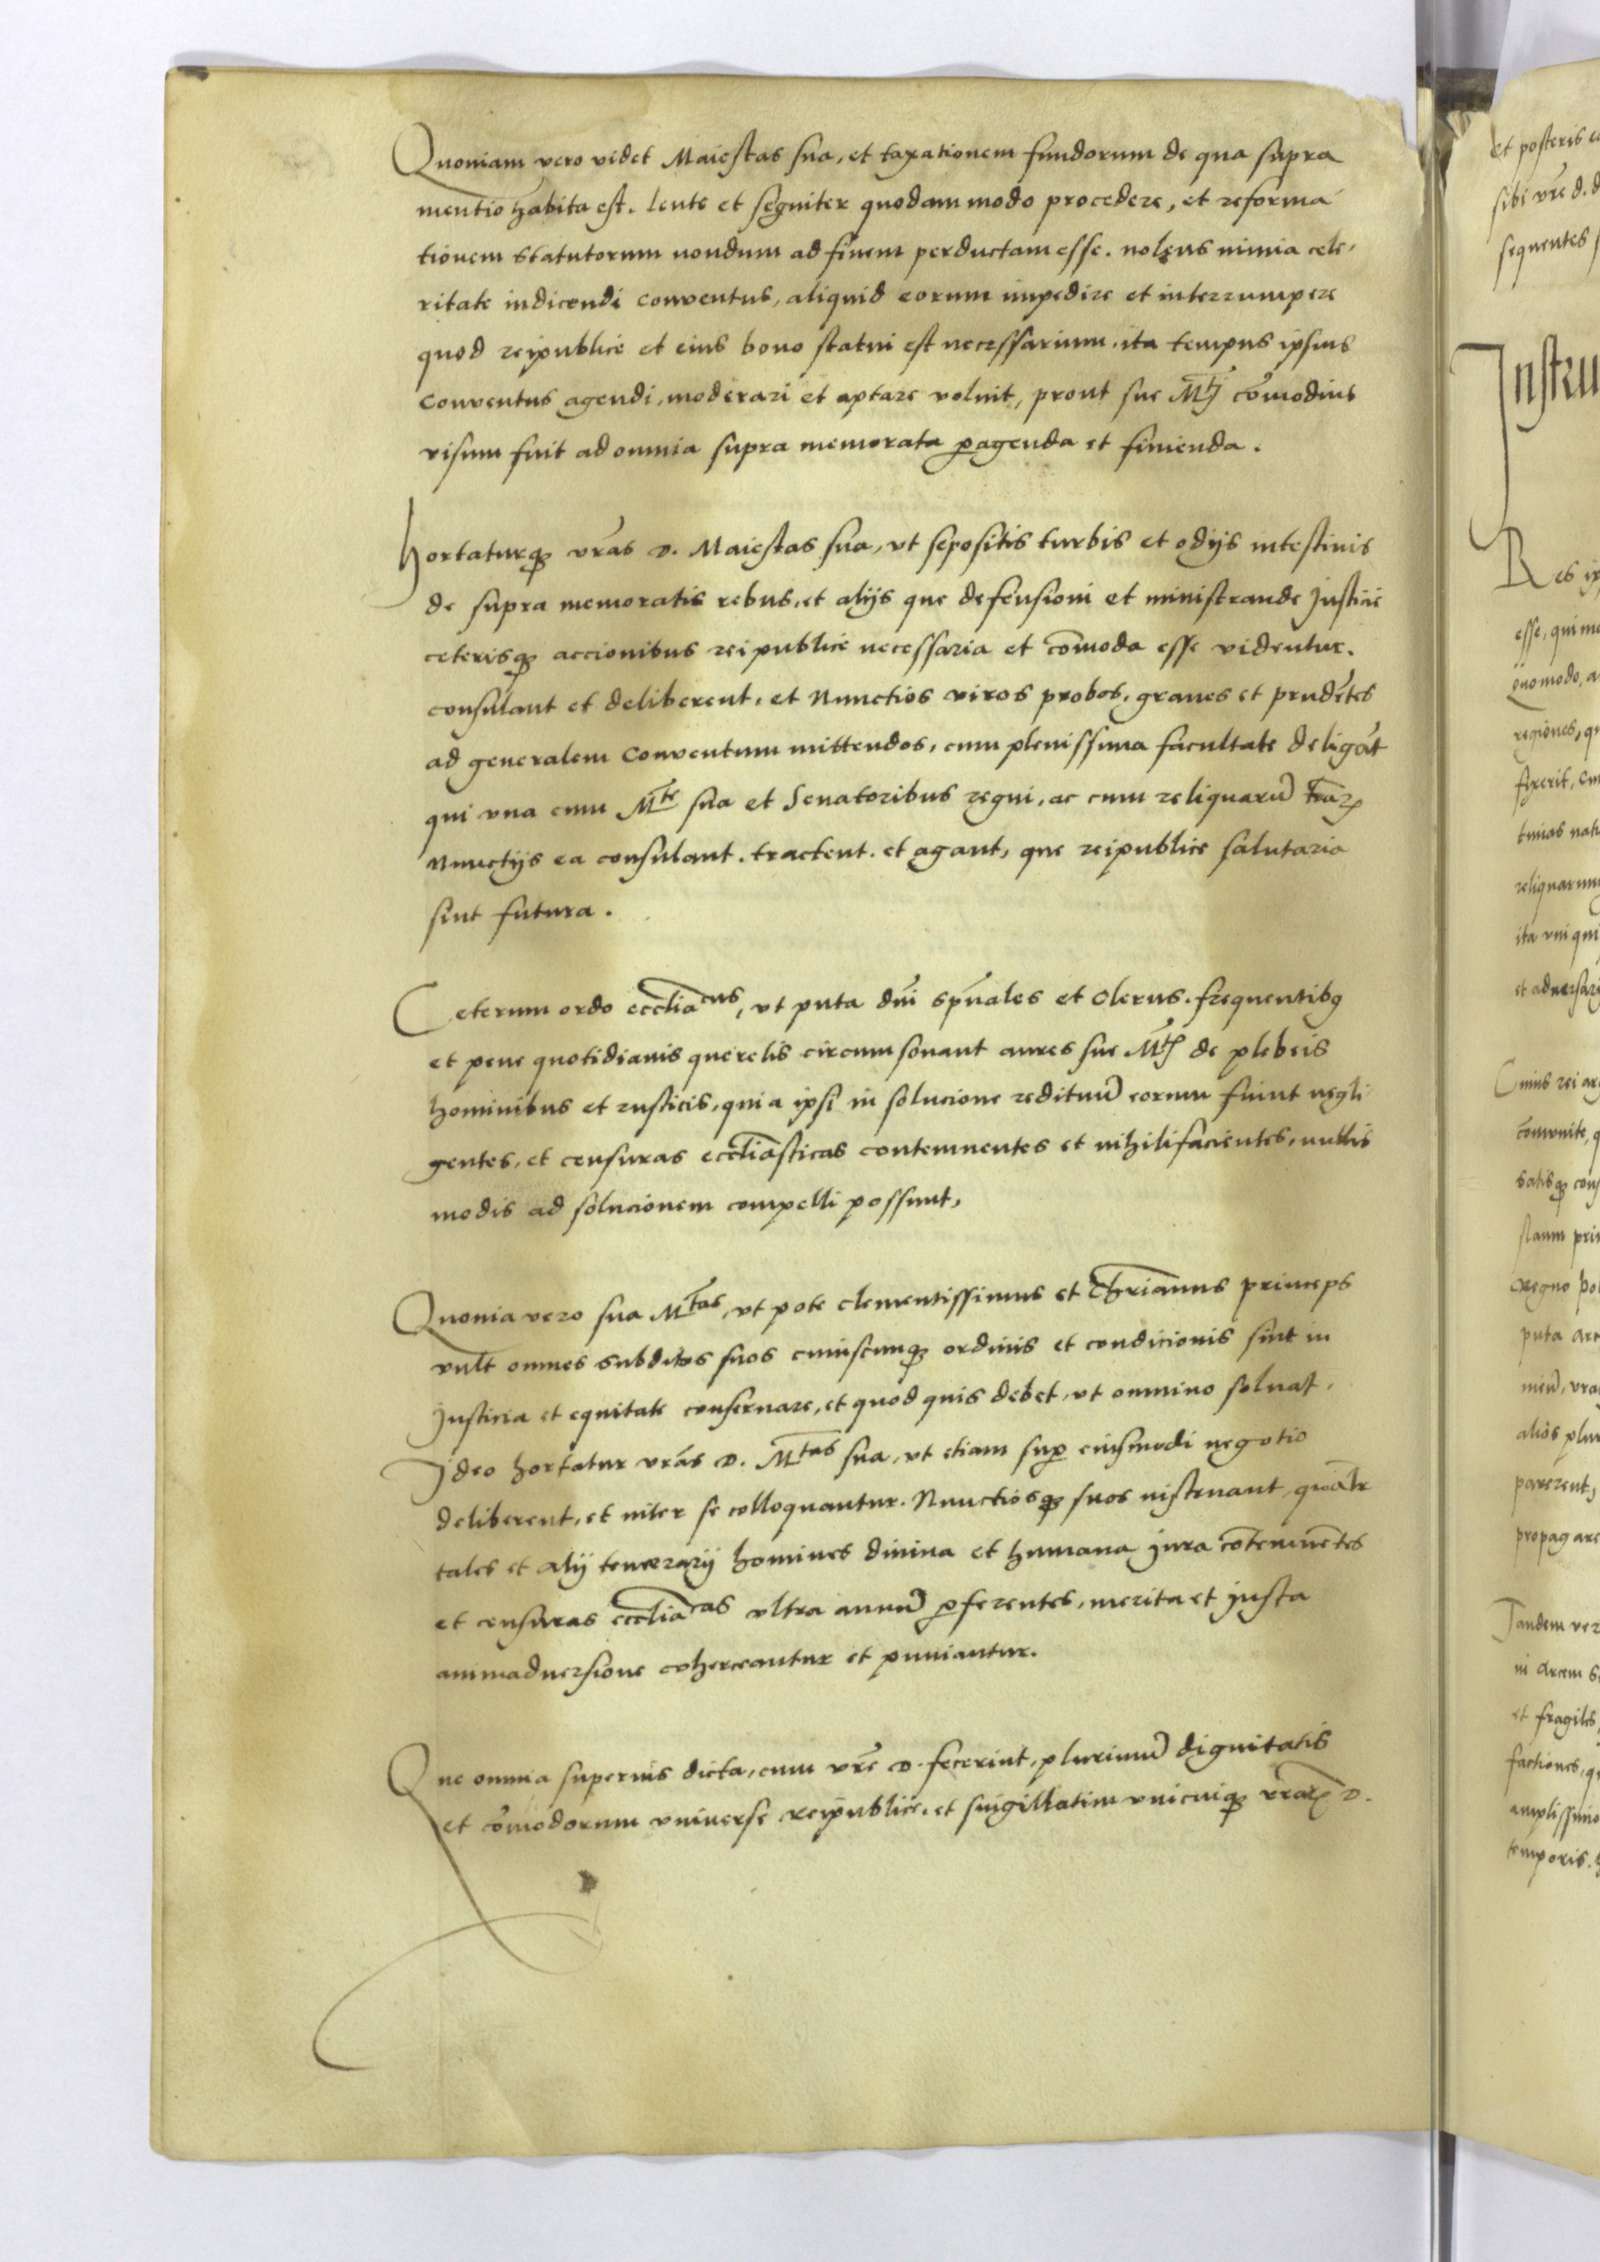 Quoniam vero videt Maiestas sua, et taxationem fundorum de qua supra
mentio habita est. lente et segniter quodammodo procedere, et reforma
tionem statutorum nondum ad finem perductam esse. nolens nimia cele,
ritate indicendi conventus, aliquid eorum impedire et interrumpere
quod reipublice et eius bono statui est necessarium, ita tempus ipsius
conventus agendi, moderari et aptare voluit, prout sue Mti com̄odius
visum fuit ad omnia supra memorata ꝑagenda et finienda.
Hortaturqꝫ vr̄as D. Maiestas sua, ut sepositis turbis et odijs intestinis
de supra memoratis rebus, et alijs que defensioni et ministrande justicie
ceterisqꝫ accionibus reipublice necessaria et cōmoda esse videntur.
consulant et deliberent, et Nunctios viros probos, graves et prudētes
ad generalem conventum mittendos, cum plenissima facultate deligāt
qui una cum Mte sua et Senatoribus regni, ac cum reliquarū trāꝝ
Nunctijs ea consulant. tractent. et agant, que reipublice salutaria
sint futura.
Ceterum ordo eccl̄iacus, ut puta dn̄i spūales et Clerus. frequentibꝫ
et pene quotidianis querelis circumsonant aures sue Mtis de plebeis
hominibus et rusticis, quia ipsi in solucione redituū eorum fiunt negli
gentes, et censuras eccl̄iasticas contemnentes et nihilifacientes, nullis
modis ad solucionem compelli possunt,
Quonia vero sua Mtas, ut pote clementissimus et Chr̄ianus princeps
vult omnes subditos suos cuiuscunqꝫ ordinis et condicionis sint in
justicia et equitate conservare, et quod quis debet, ut omnino solvat,
Ideo hortatur vr̄as D. Mtas sua, ut etiam suꝑ eiusmodi negotio
deliberent, et inter se colloquantur. Nunctiosqꝫ suos instruant, quāte
tales et alij temerarij homines divina et humana jura cōtemnētes
et censuras eccl̄iacas ultra annū ꝑferentes, merita et justa
animadversione coherceantur et puniantur.
Que omnia superius dicta, cum vr̄e D. fecerint, plurimū dignitatis
et cōmodorum universe reipublice, et singillatim unicuiqꝫ vr̄aꝝ D.
et posteris
sibi vr̄e d. d
sequentes
Instru
Res
esse, qui
quomodo, a
regiones, qu
reliquarum
ita uni qui
et adversari
Cuius rei
satisqꝫ
Regno
puta
alios
parerent,
propagare
Tandem
in arcem
et fragiles
factiones,
amplissimo
temporis.